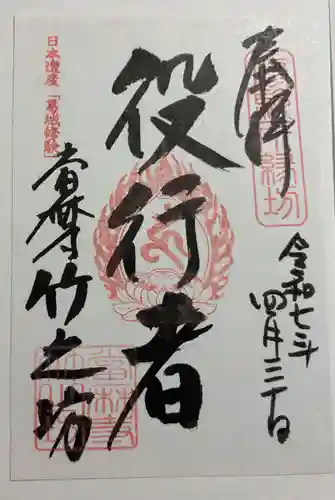 奉拝
令和七年
四月二十日
役行者
日本遺産「葛城修験」
當麻寺竹之坊